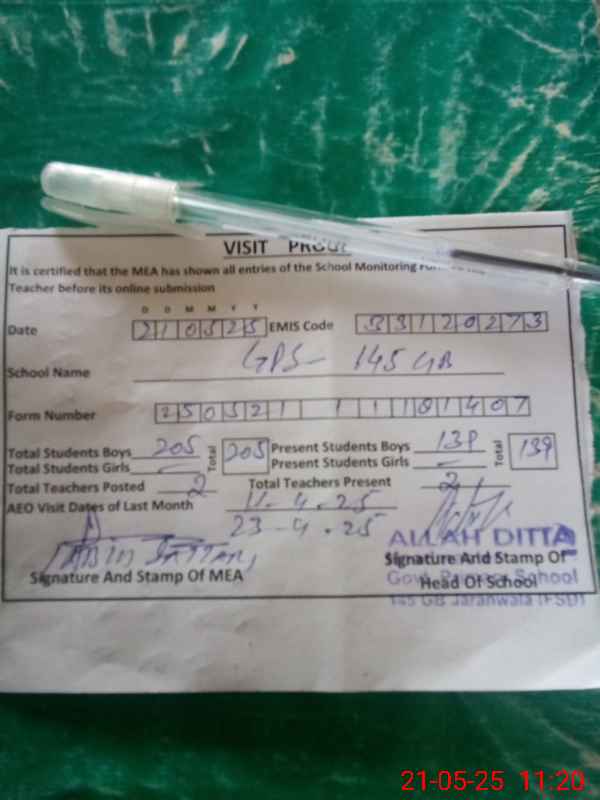 VISIT PROOF
It is certified that the MEA has shown all entries of the School Monitoring
Teacher before its online submission
D D M M Y Y
Date 210525 EMIS Code 33120273
School Name GPS- 145 GB
Form Number 250521 1 1 1 101407
Total Students Boys 205 Total 205 Present Students Boys 139 Total 139
Total Students Girls — Present Students Girls —
Total Teachers Posted 2 Total Teachers Present 2
AEO Visit Dates of Last Month 11-4-25
23-4-25
ALLAH DITTA
Signature And Stamp Of MEA Signature And Stamp Of
School
Head Of School
145 GB Jaranwala (FSD)
21-05-25 11:20